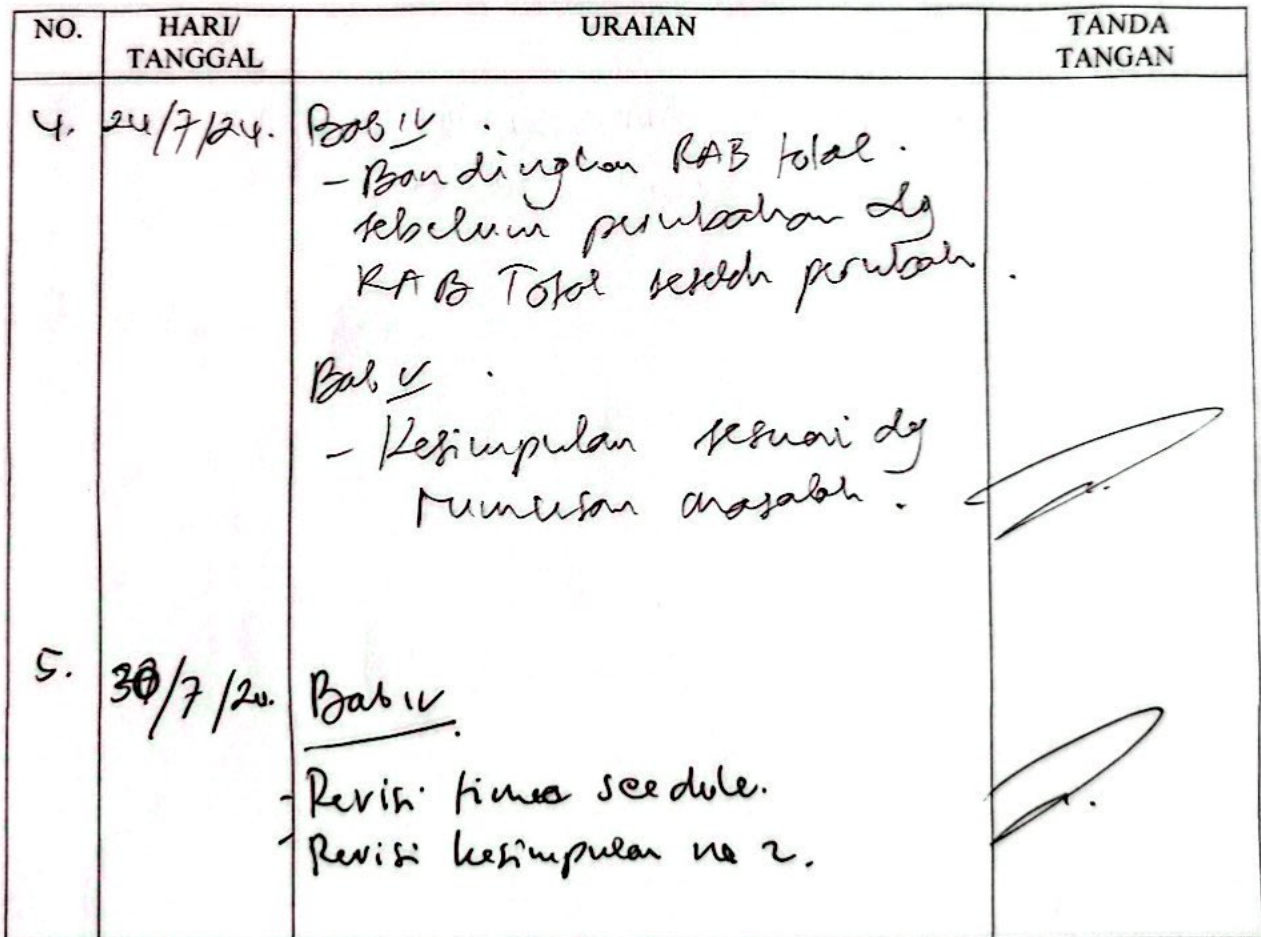 NO. HARI/ TANGGAL URAIAN TANDA TANGAN
4. 24/7/24. Bab IV .
- Bandingkan RAB total.
sebelum perubahan dg
RAB Total setelah perubah .
Bab V .
- Kesimpulan sesuai dg
rumusan masalah .
5. /7/ Bab IV.
- Revisi time scedule.
- Revisi kesimpulan no 2.